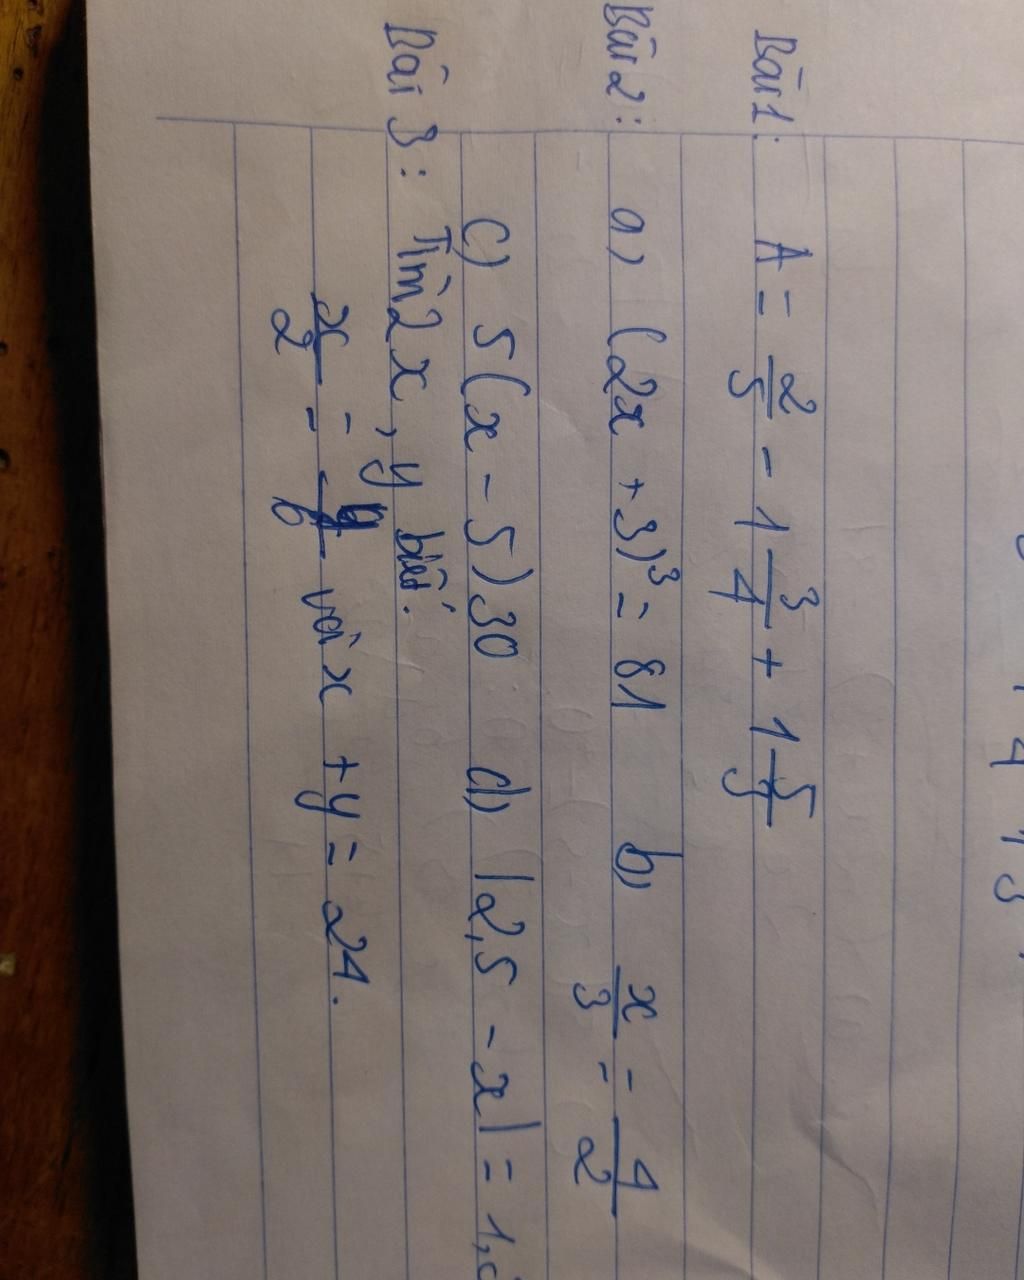 Bài 1: A = 2/5 - 1 3/4 + 1 5/5
Bài 2: a) (2x + 3)³ = 81 b) x/3 = 4/2
c) 5(x - 5) 30 d) |2,5 - x| = 1,
Bài 3: Tìm 2 x, y biết:
x/2 = y/6 và x + y = 24.